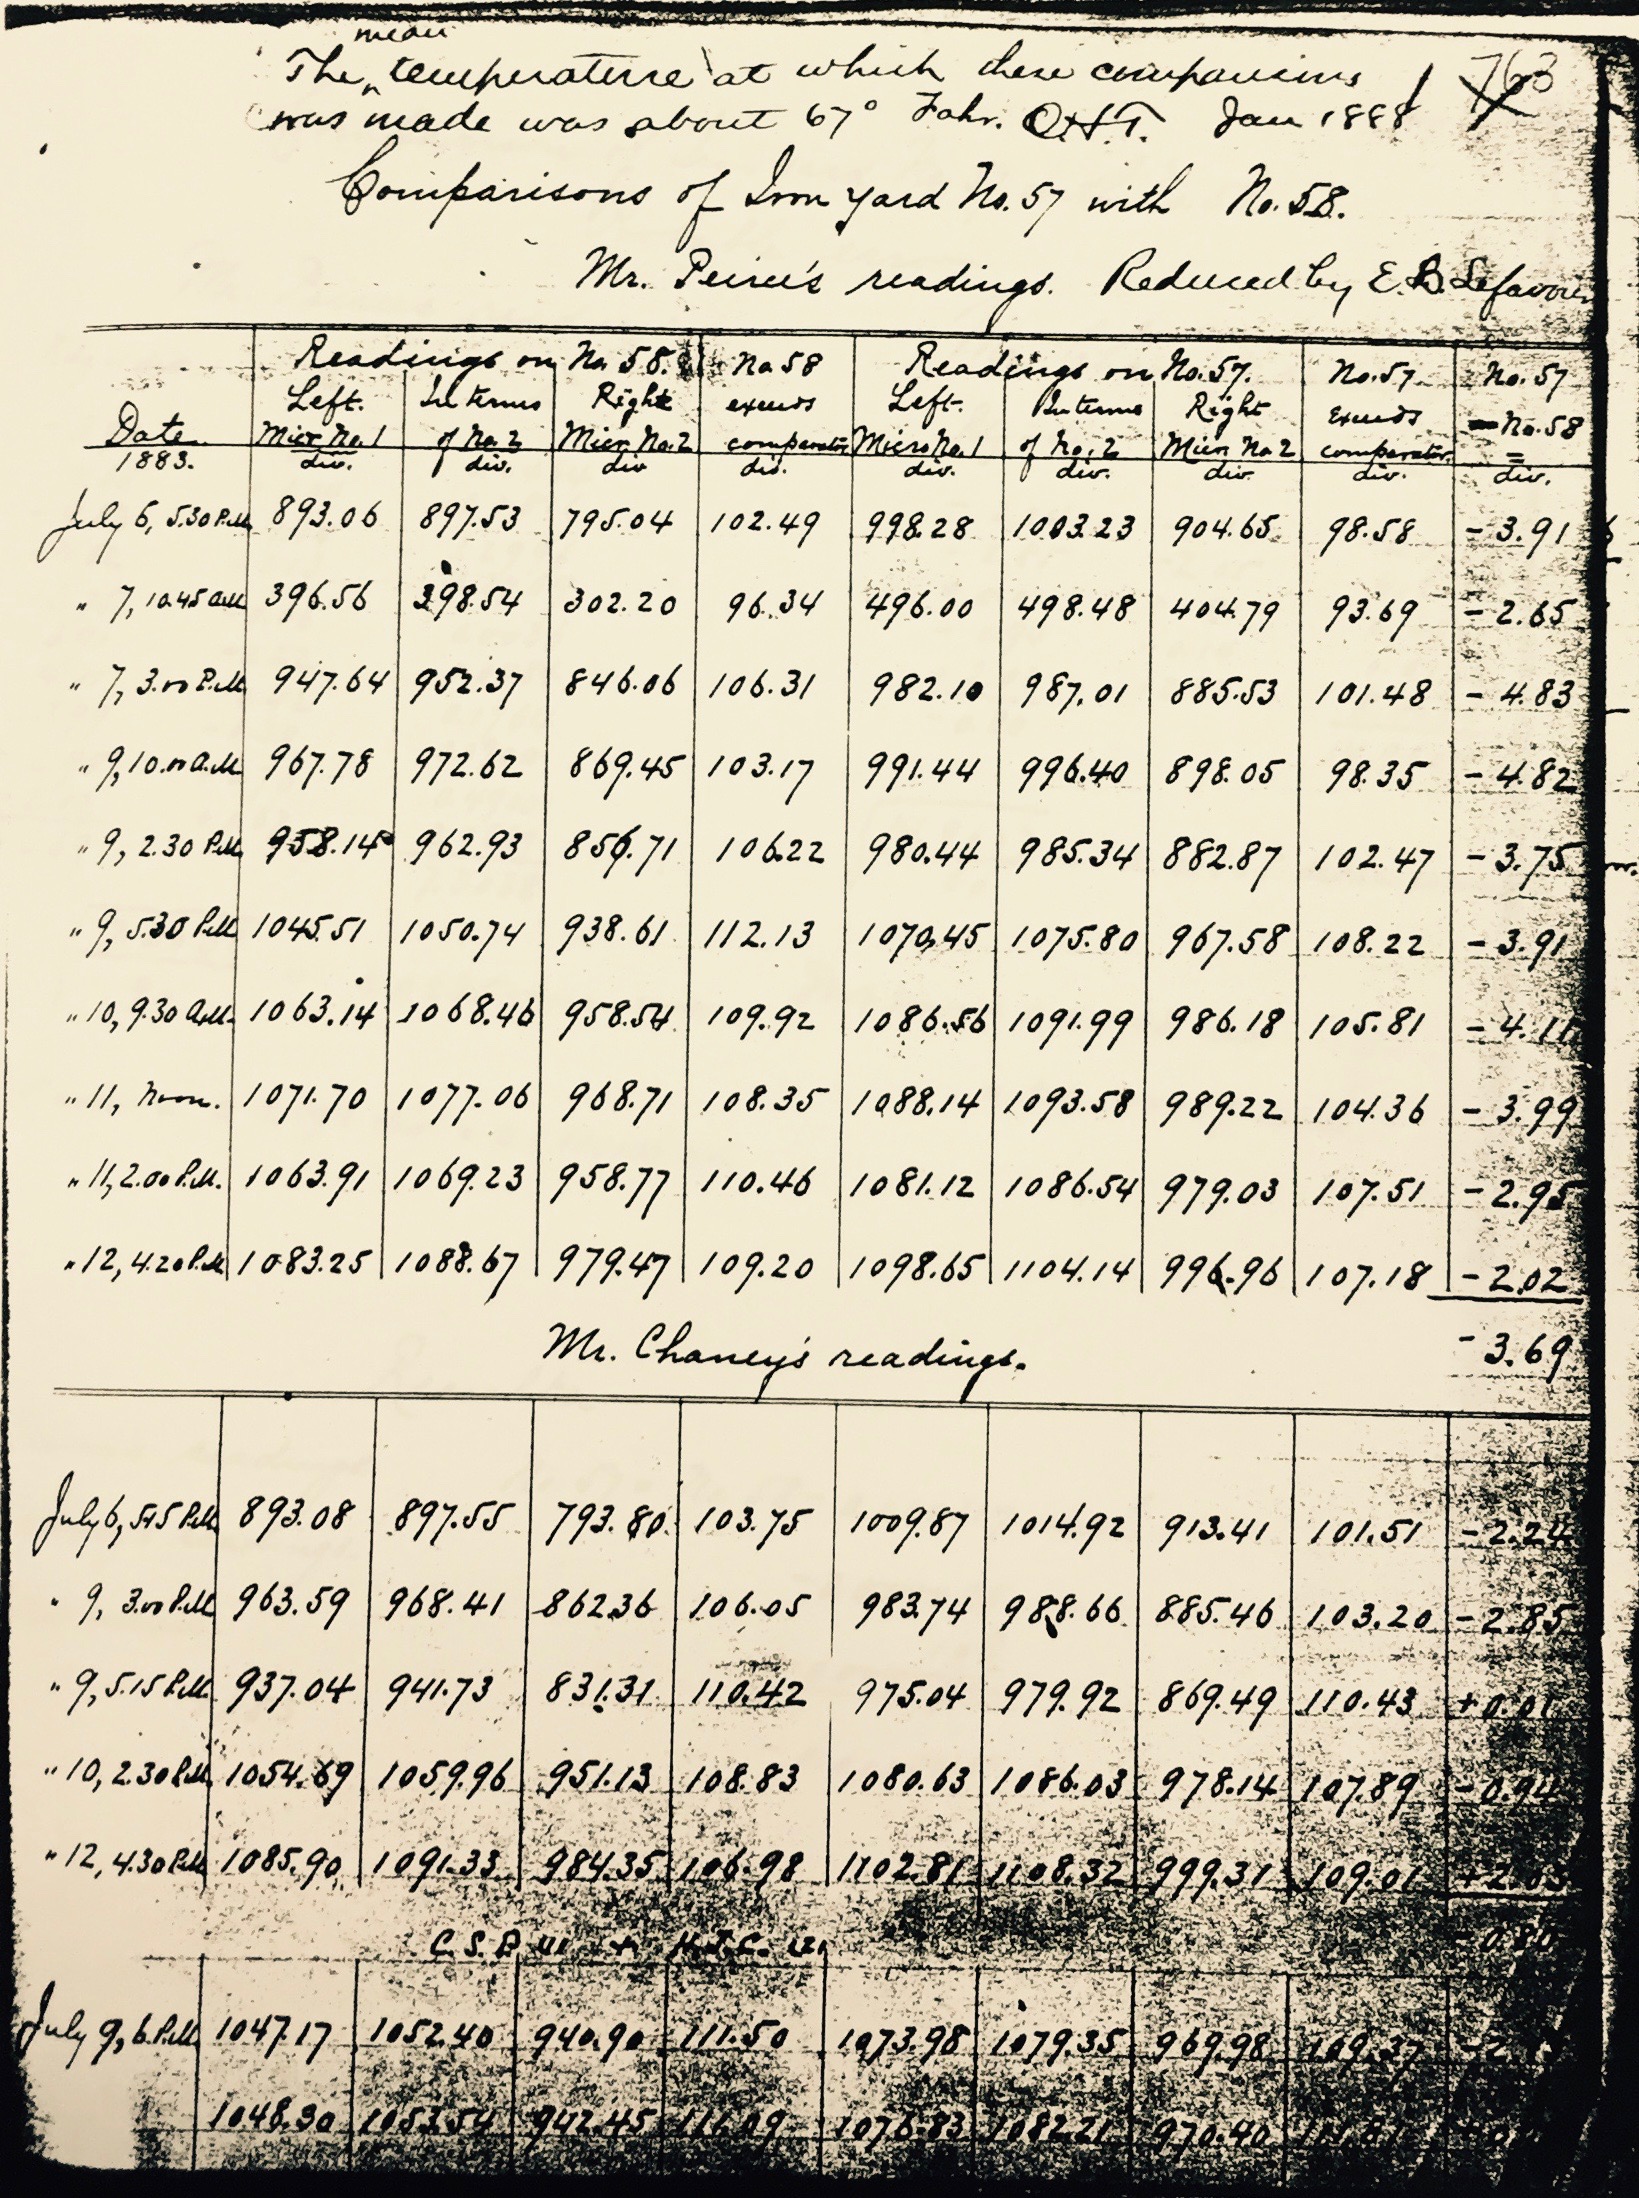 mean
The temperature at which these comparisons
was made was about 67° Fahr. O.H.T. Jan 1888
763
Comparisons of Iron Yard No. 57 with No. 58.
Mr. Peirce's readings. Reduced by E. B. Lefavour
Readings on No. 58. No 58 Readings on No. 57. No. 57 No. 57
Left. In terms Right exceeds Left. In terms Right Exceeds — No. 58
Date Micr No. 1 of No. 2 Micr No. 2 comparator Micr No. 1 of No. 2 Micr No 2 comparator. =
1883. div. div. div div. div. div. div. div. div.
July 6, 5.30 P.M. 893.06 897.53 795.04 102.49 998.28 1003.23 904.65 98.58 - 3.91
" 7, 10.45 A.M. 396.56 398.54 302.20 96.34 496.00 498.48 404.79 93.69 - 2.65
" 7, 3.00 P.M. 947.64 952.37 846.06 106.31 982.10 987.01 885.53 101.48 - 4.83
" 9, 10.00 A.M. 967.78 972.62 869.45 103.17 991.44 996.40 898.05 98.35 - 4.82
" 9, 2.30 P.M. 958.14 962.93 856.71 106.22 980.44 985.34 882.87 102.47 - 3.75
" 9, 5.30 P.M. 1045.51 1050.74 938.61 112.13 1070.45 1075.80 967.58 108.22 - 3.91
" 10, 9.30 A.M. 1063.14 1068.46 958.54 109.92 1086.56 1091.99 986.18 105.81 - 4.11
" 11, Noon. 1071.70 1077.06 968.71 108.35 1088.14 1093.58 989.22 104.36 - 3.99
" 11, 2.00 P.M. 1063.91 1069.23 958.77 110.46 1081.12 1086.54 979.03 107.51 - 2.95
" 12, 4.20 P.M. 1083.25 1088.67 979.47 109.20 1098.65 1104.14 996.96 107.18 - 2.02
- 3.69
Mr. Chaney's readings.
July 6, 5.45 P.M. 893.08 897.55 793.80 103.75 1009.87 1014.92 913.41 101.51 - 2.24
" 9, 3.00 P.M. 963.59 968.41 862.36 106.05 983.74 988.66 885.46 103.20 - 2.85
" 9, 5.15 P.M. 937.04 941.73 831.31 110.42 975.04 979.92 869.49 110.43 + 0.01
" 10, 2.30 P.M. 1054.69 1059.96 951.13 108.83 1080.63 1086.03 978.14 107.89 - 0.94
" 12, 4.30 P.M. 1085.90 1091.33 984.35 106.98 1102.81 1108.32 999.31 109.01 + 2.03
- 0.80
C. S. P. H. J. C.
July 9, 6. P.M. 1047.17 1052.40 940.90 111.50 1073.98 1079.35 969.98 109.37
1048.30 1053.54 942.45 111.09 1076.83 1082.21 970.40